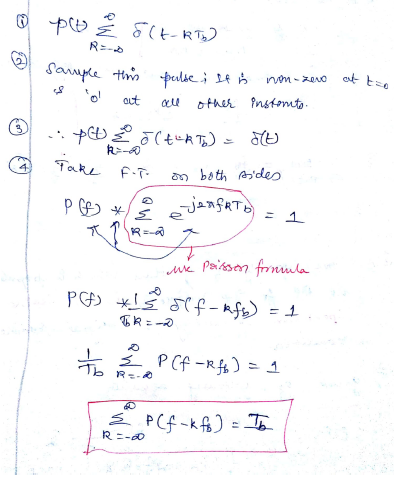 ① p(t) ∞ ∑ k=-∞ δ(t-kTb)
② Sample this pulse; It is non-zero at t=0
& '0' at all other instants.
③ ∴ p(t) ∞ ∑ k=-∞ δ(t-kTb) = δ(t)
④ Take F.T. on both sides
P(f) * ∞ ∑ k=-∞ e^{-j2πfkTb} = 1
use Poisson formula
P(f) * 1/Tb ∞ ∑ k=-∞ δ(f-kfb) = 1
1/Tb ∞ ∑ k=-∞ P(f-kfb) = 1
∞ ∑ k=-∞ P(f-kfb) = Tb